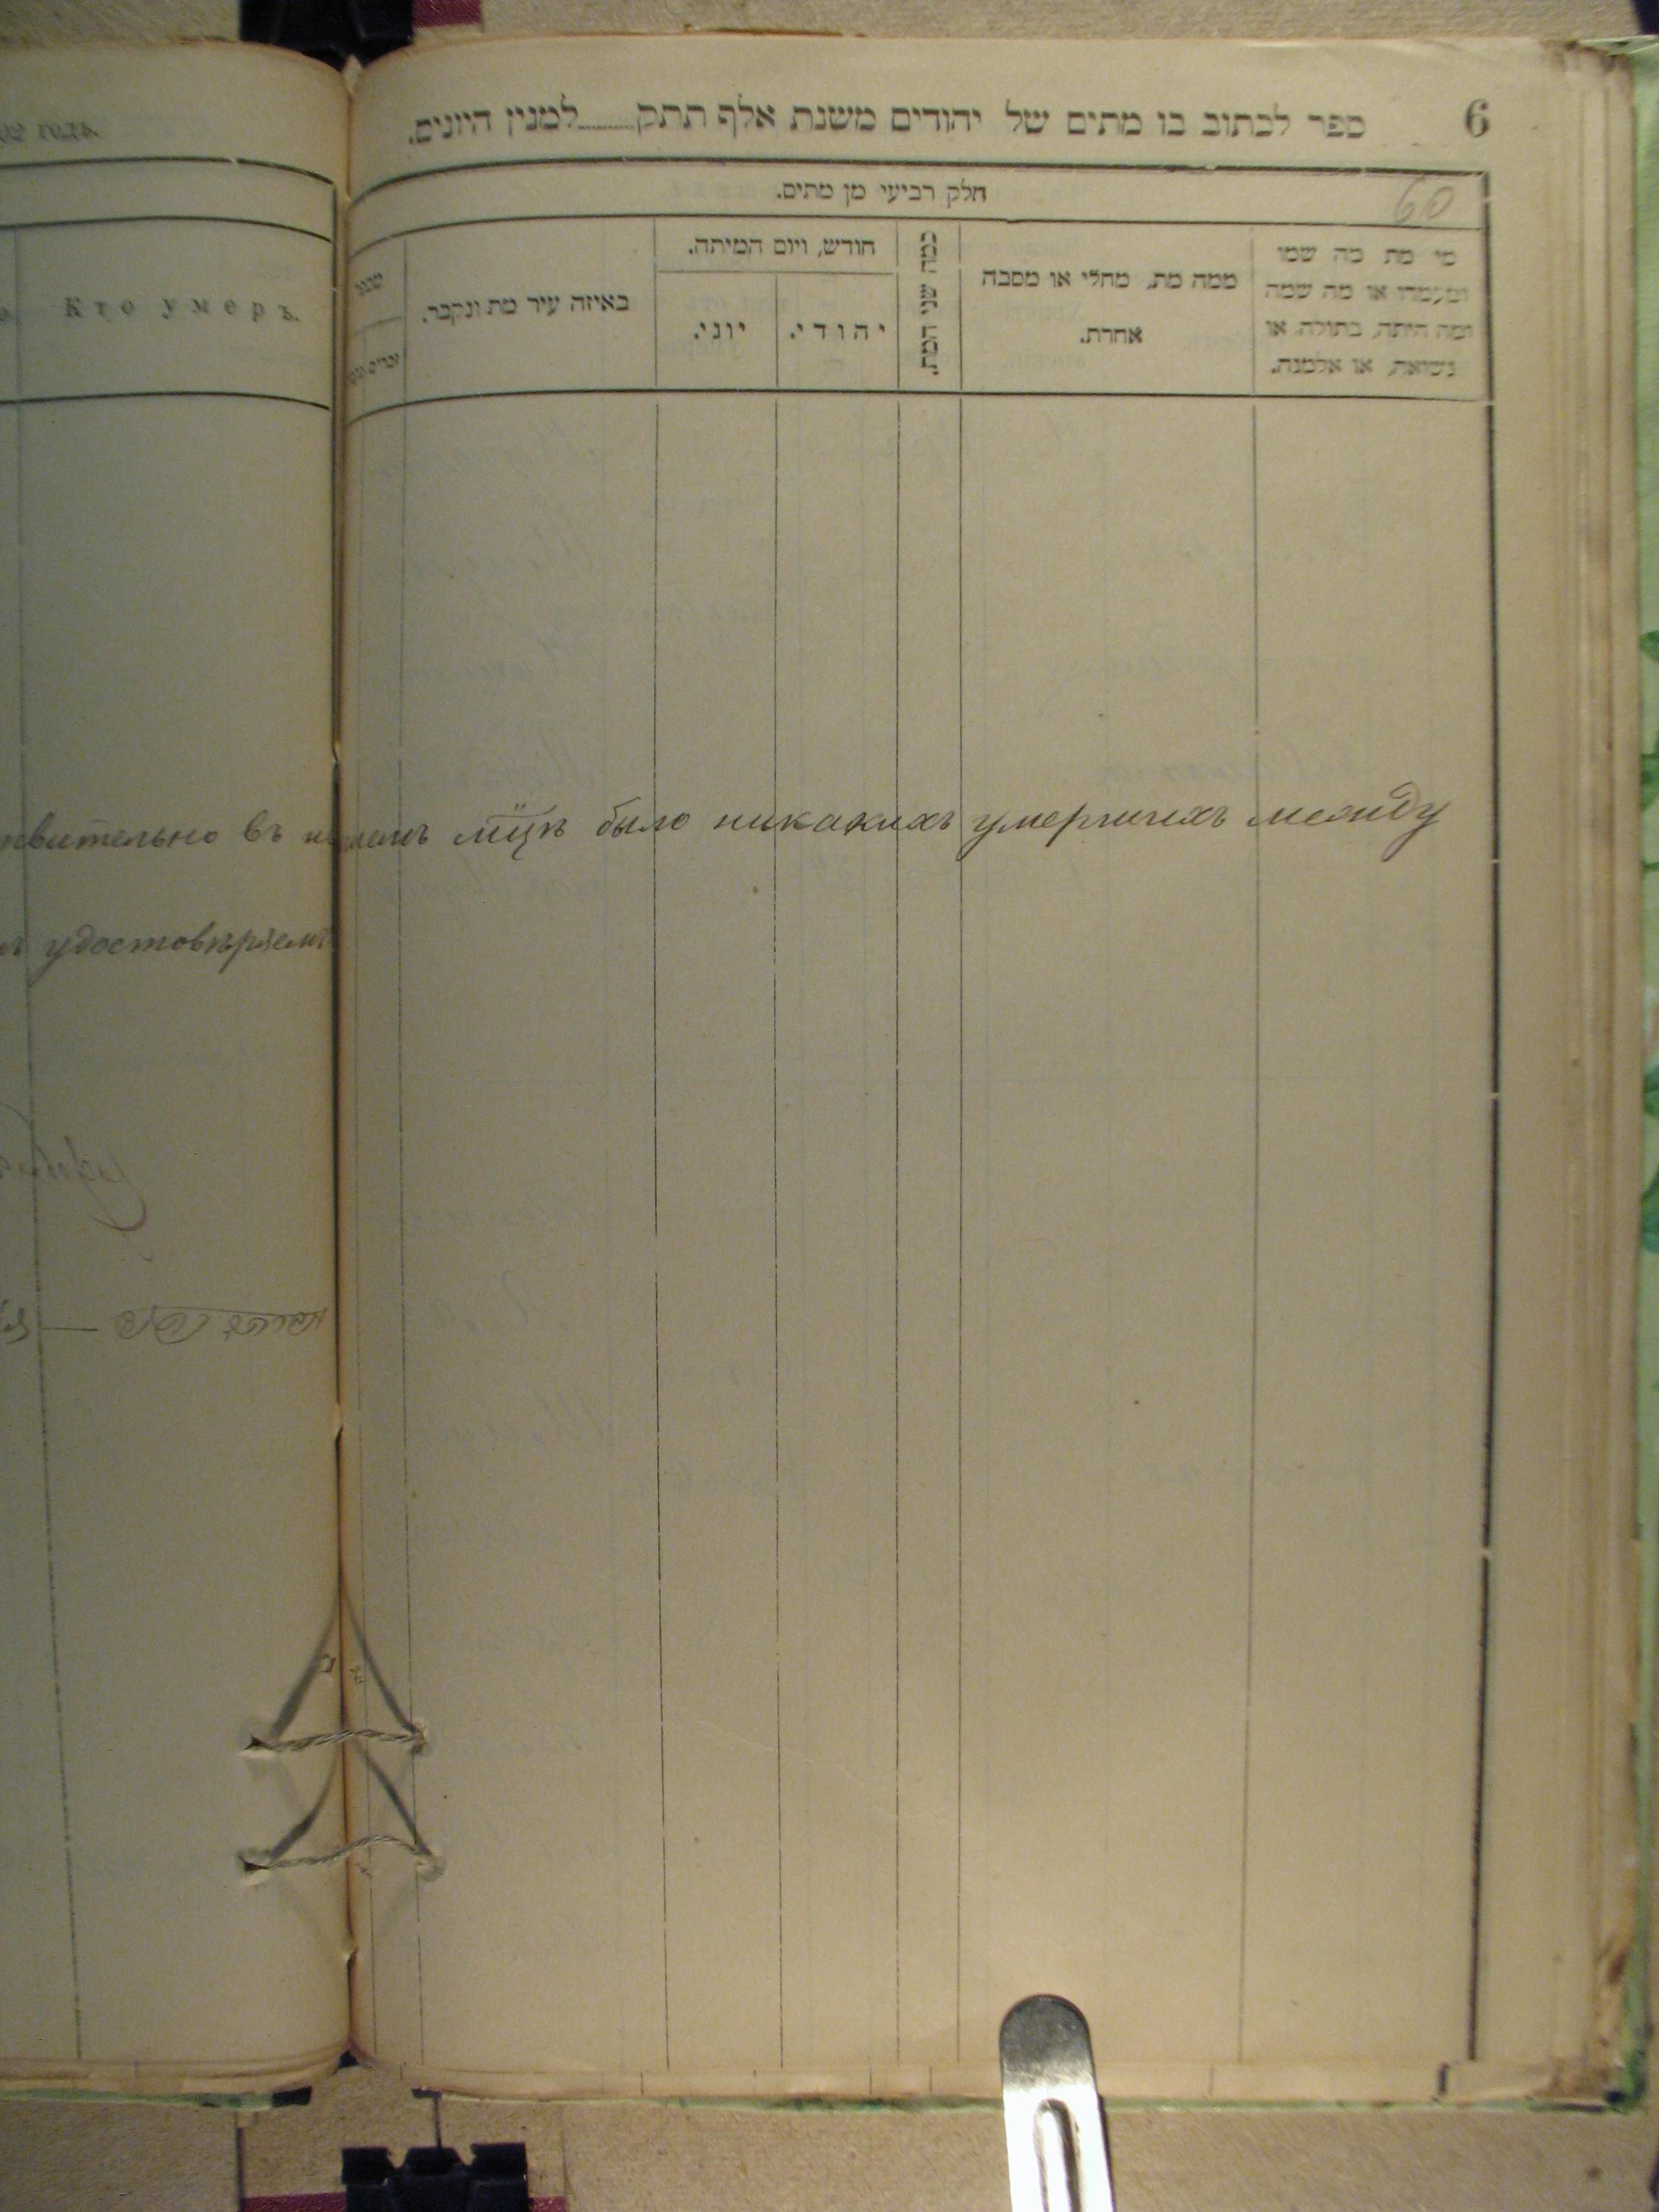 годъ.
Кто умеръ.
удостовѣряемъ
6
ספר לכתוב בו מתים של יהודים משנת אלף תתק......למנין היונים.
60
חלק רביעי מן מתים.
מי מת מה שמו
ומעמדו או מה שמה
ומה היתה, בתולה, או
נשואה, או אלמנה.
ממה מת, מחלי או מסבה
אחרת.
כמה שני המת.
חודש, ויום המיתה.
יהודי.
יוני.
באיזה עיר מת ונקבר.
въ было никакихъ умершихъ между